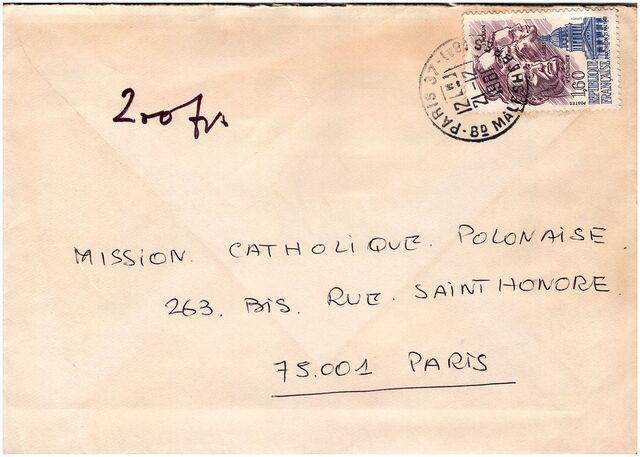 1,60
POSTES
RÉPUBLIQUE
FRANÇAISE
PARIS 37
12H
21-12
1981
BD MALESHERBES
200 frs
MISSION. CATHOLIQUE. POLONAISE
263. BIS. RUE. SAINT HONORE
75.001 PARIS